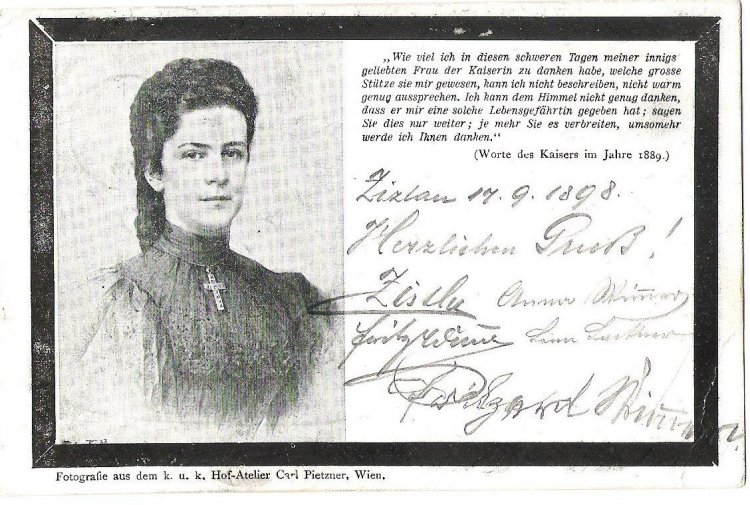 „Wie viel ich in diesen schweren Tagen meiner innigs
geliebten Frau der Kaiserin zu danken habe, welche grosse
Stütze sie mir gewesen, kann ich nicht beschreiben, nicht warm
genug aussprechen. Ich kann dem Himmel nicht genug danken,
dass er mir eine solche Lebensgefährtin gegeben hat; sagen
Sie dies nur weiter; je mehr Sie es verbreiten, umsomehr
werde ich Ihnen danken.“
(Worte des Kaisers im Jahre 1889.)
17. 9. 1898.
Herzlichen Gruß!
Anna
Fritz
Fotografie aus dem k. u. k. Hof-Atelier Carl Pietzner, Wien.